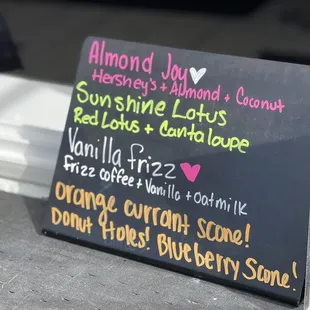 Almond Joy
Hershey's + Almond + Coconut
Sunshine Lotus
Red Lotus + Cantaloupe
Vanilla frizz
frizz coffee + Vanilla + Oatmilk
orange currant scone!
Donut Holes! Blueberry Scone!